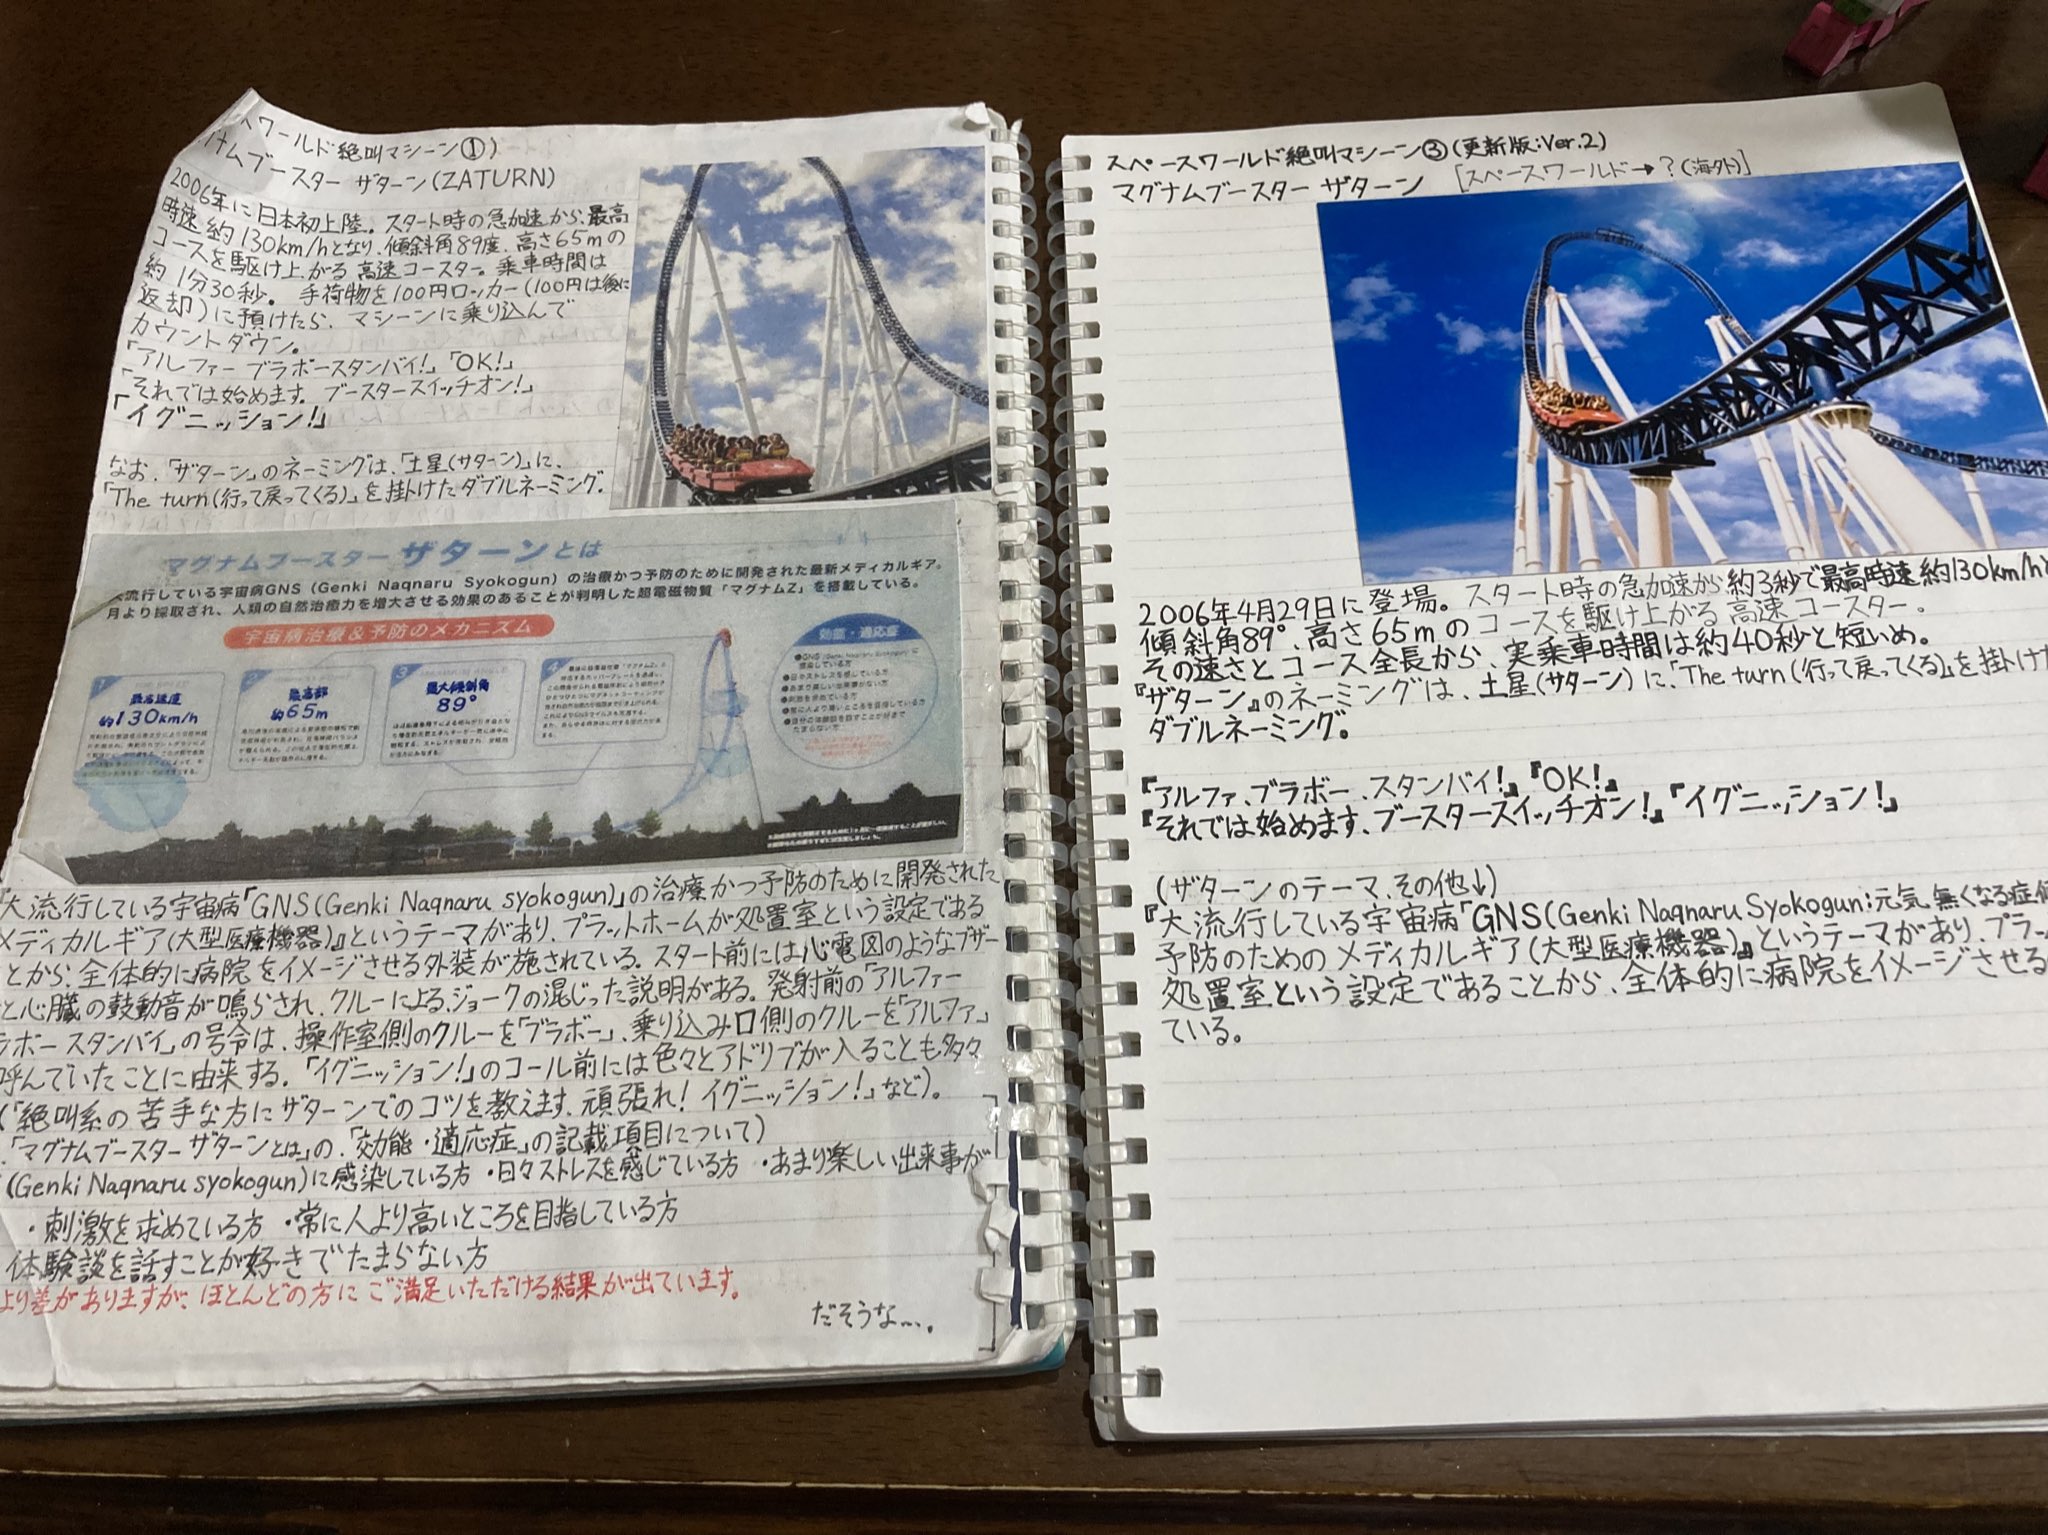 スワールド絶叫マシーン①)
ナムブースター ザターン(ZATURN)
2006年に日本初上陸。スタート時の急加速から、最高
時速 約130km/hとなり、傾斜角89度、高さ65mの
コースを駆け上がる高速コースター。乗車時間は
約1分30秒。手荷物を100円ロッカー(100円は後に
返却)に預けたら、マシーンに乗り込んで
カウントダウン。
「アルファー ブラボースタンバイ!」「OK!」
「それでは始めます。ブースタースイッチオン!」
「イグニッション!」
なお、「ザターン」のネーミングは、「土星(サターン)」に、
「The turn(行って戻ってくる)」を掛けたダブルネーミング。
マグナムブースター ザターンとは
大流行している宇宙病GNS(Genki Naqnaru Syokogun)の治療かつ予防のために開発された最新メディカルギア。
月より採取され、人類の自然治癒力を増大させる効果のあることが判明した超電磁物質「マグナムZ」を搭載している。
宇宙病治療&予防のメカニズム
1
最高速度
約130km/h
2
最高部
約65m
3
最大傾斜角
89°
4
効能・適応症
●GNS(Genki Naqnaru Syokogun)に
感染している方
●日々ストレスを感じている方
●あまり楽しい出来事がない方
●刺激を求めている方
●常に人より高いところを目指している方
●自分の体験談を話すことが好きで
たまらない方
『大流行している宇宙病「GNS(Genki Naqnaru syokogun)」の治療かつ予防のために開発された
メディカルギア(大型医療機器)』というテーマがあり、プラットホームが処置室という設定である
とから、全体的に病院をイメージさせる外装が施されている。スタート前には心電図のようなブザー
と心臓の鼓動音が鳴らされ、クルーによるジョークの混じった説明がある。発射前の「アルファー
ラボースタンバイ」の号令は、操作室側のクルーを「ブラボー」、乗り込み口側のクルーを「アルファ」
呼んでいたことに由来する。「イグニッション!」のコール前には色々とアドリブが入ることも多々
(「絶叫系の苦手な方にザターンでのコツを教えます、頑張れ!イグニッション!」など)。
「マグナムブースターザターンとは」の、「効能・適応症」の記載項目について)
(Genki Naqnaru syokogun)に感染している方 ・日々ストレスを感じている方 ・あまり楽しい出来事が
・刺激を求めている方 ・常に人より高いところを目指している方
体験談を話すことが好きでたまらない方
より差がありますが、ほとんどの方にご満足いただける結果が出ています。
だそうな…。
スペースワールド絶叫マシーン③(更新版:Ver.2)
マグナムブースター ザターン [スペースワールド→?(海外)]
2006年4月29日に登場。スタート時の急加速から約3秒で最高時速 約130km/hと
傾斜角89°、高さ65mのコースを駆け上がる高速コースター。
その速さとコース全長から、実乗車時間は約40秒と短いめ。
『ザターン』のネーミングは、土星(サターン)に、「The turn(行って戻ってくる)」を掛けた
ダブルネーミング。
『アルファ、ブラボー、スタンバイ!』『OK!』
『それでは始めます、ブースタースイッチオン!』『イグニッション!』
(ザターンのテーマ、その他↓)
『大流行している宇宙病「GNS(Genki Naqnaru Syokogun:元気無くなる症候
予防のためのメディカルギア(大型医療機器)』というテーマがあり、プラー
処置室という設定であることから、全体的に病院をイメージさせる
ている。